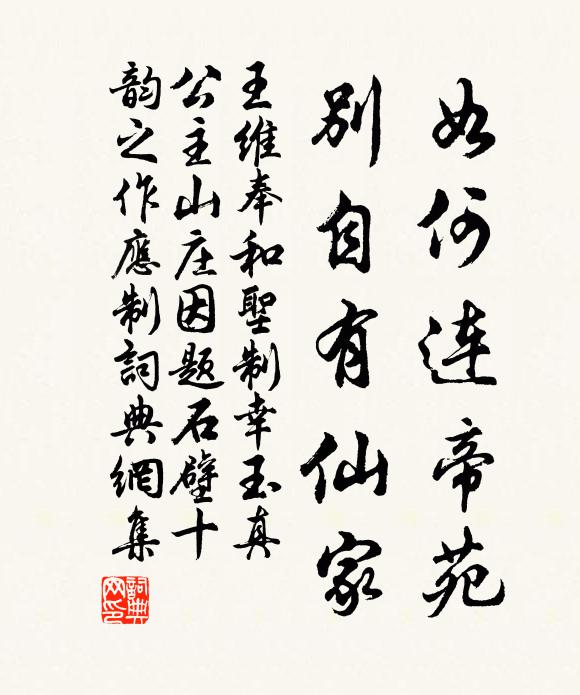 如何連帝苑
別自有仙家
王維奉和聖制幸玉真
公主山庄因题石壁十
韵之作應制詞典網集
詞典
网印